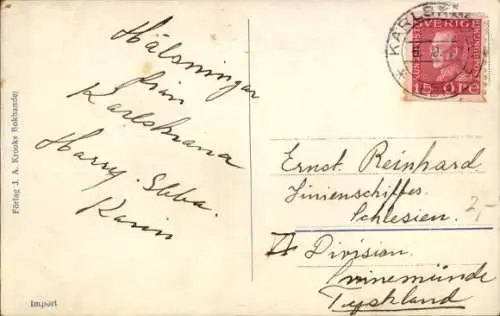 Hälsningar
från
Karlskrona
Harry. Ebba.
Karin
Förlag J. A. Krooks Bokhandel
Import
KARLSKR
SVERIGE
15 ÖRE
Ernst Reinhard
Linienschiffes
Schlesien.
2,-
Division.
Swinemünde
Tyskland